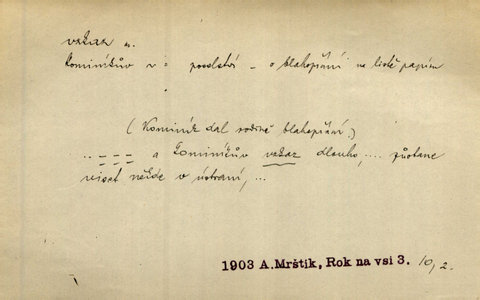 vzkaz m.
kominíkův v : poselství – o blahopřání na listě papíru
(Kominík dal rodině blahopřání.)
.. – – – a kominíkův vzkaz dlouho, .... zůstane
viset někde v ústraní, ...
1903 A. Mrštík, Rok na vsi 3. 10, 2.